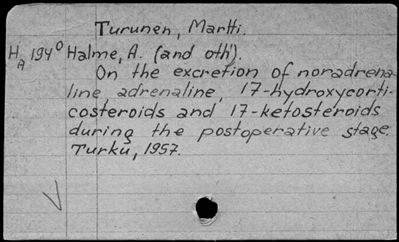 Turunen, Martti.
HA 194° Halme, A. (and oth).
On the excretion of noradrena-
line adrenaline, 17-hydroxycorti-
costeroids and 17-ketosteroids
during the postoperative stage.
Turku, 1957.